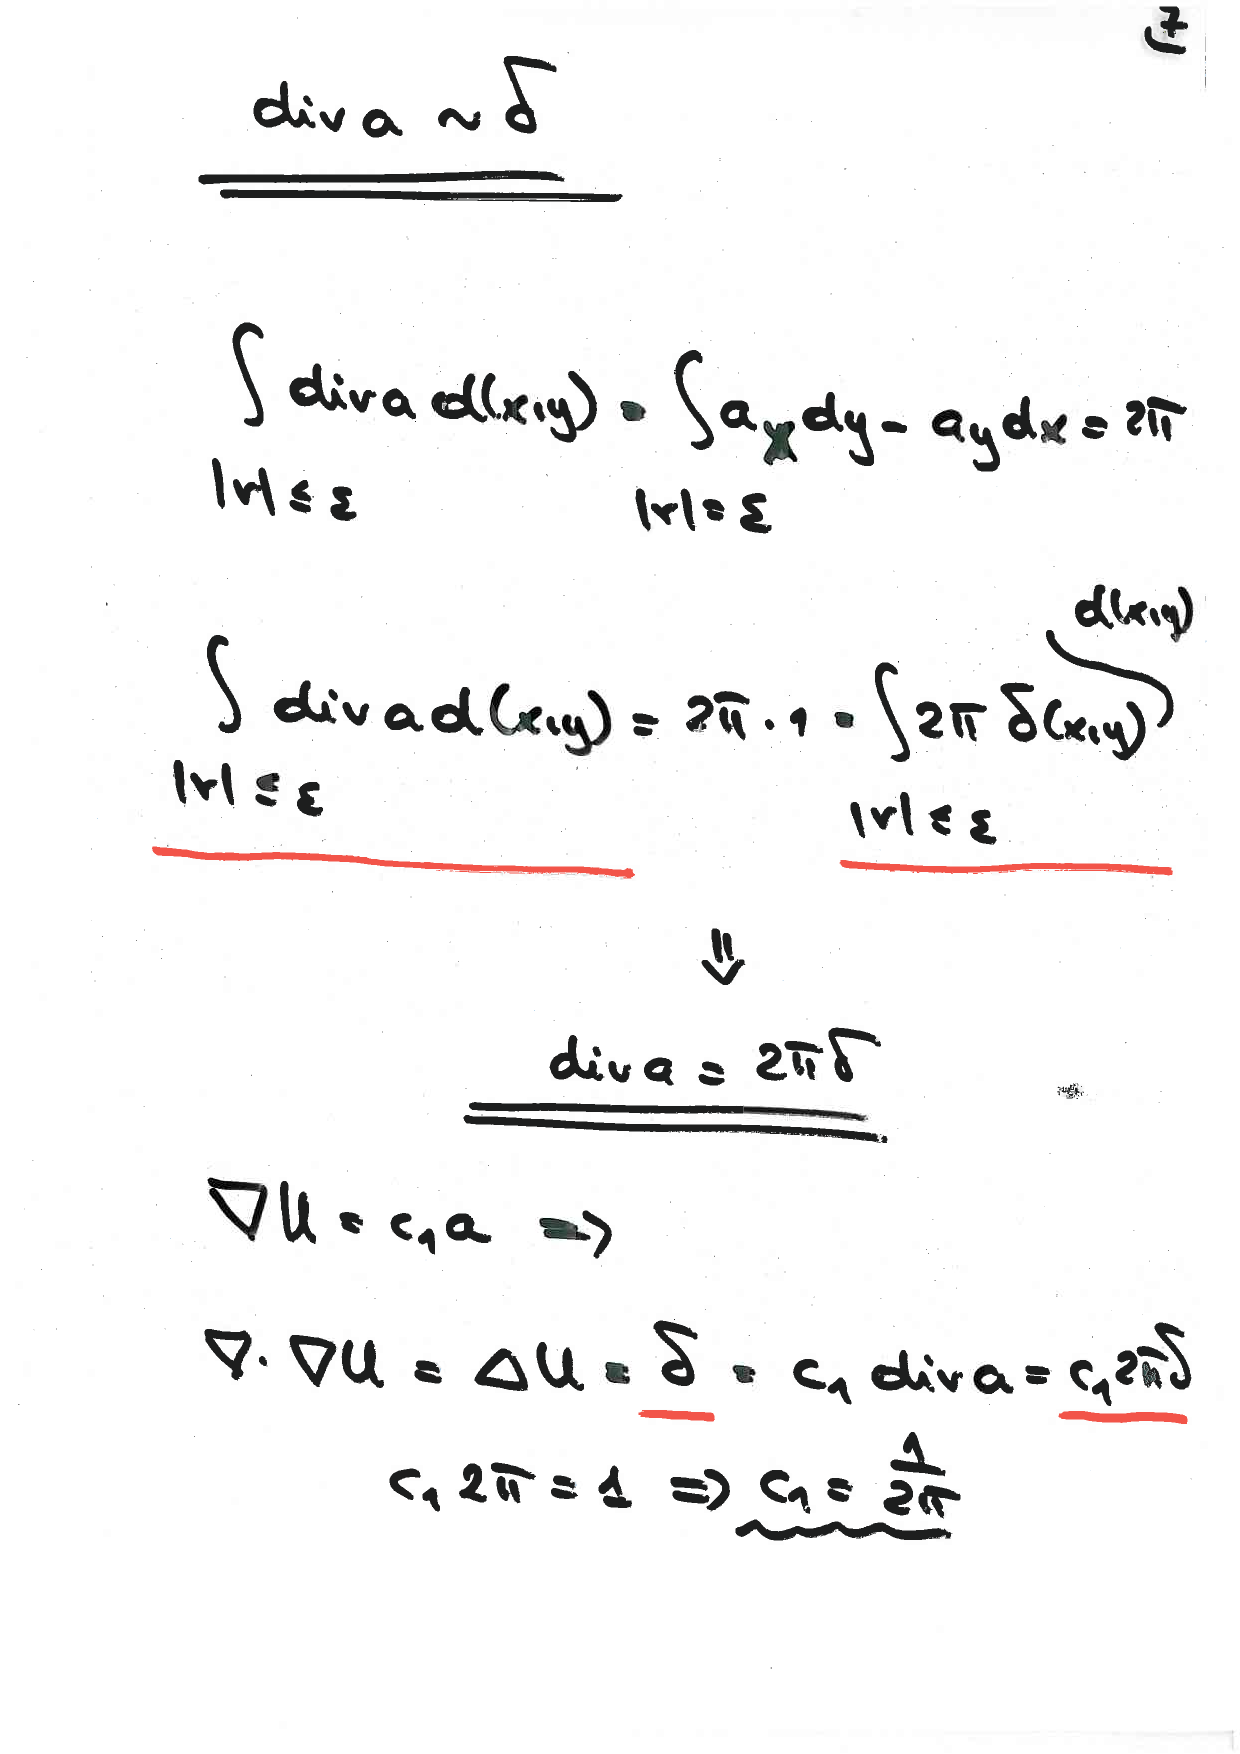 7
div a ~ δ
∫ div a d(x,y) = ∫ a_x dy - a_y dx = 2π
|r| ≤ ε |r| = ε
d(x,y)
∫ div a d(x,y) = 2π · 1 = ∫ 2π δ(x,y)
|r| ≤ ε |r| ≤ ε
⇓
div a = 2πδ
∇U = c₁a ⇒
∇·∇U = ΔU = δ = c₁ div a = c₁2πδ
c₁ 2π = 1 ⇒ c₁ = 1/2π